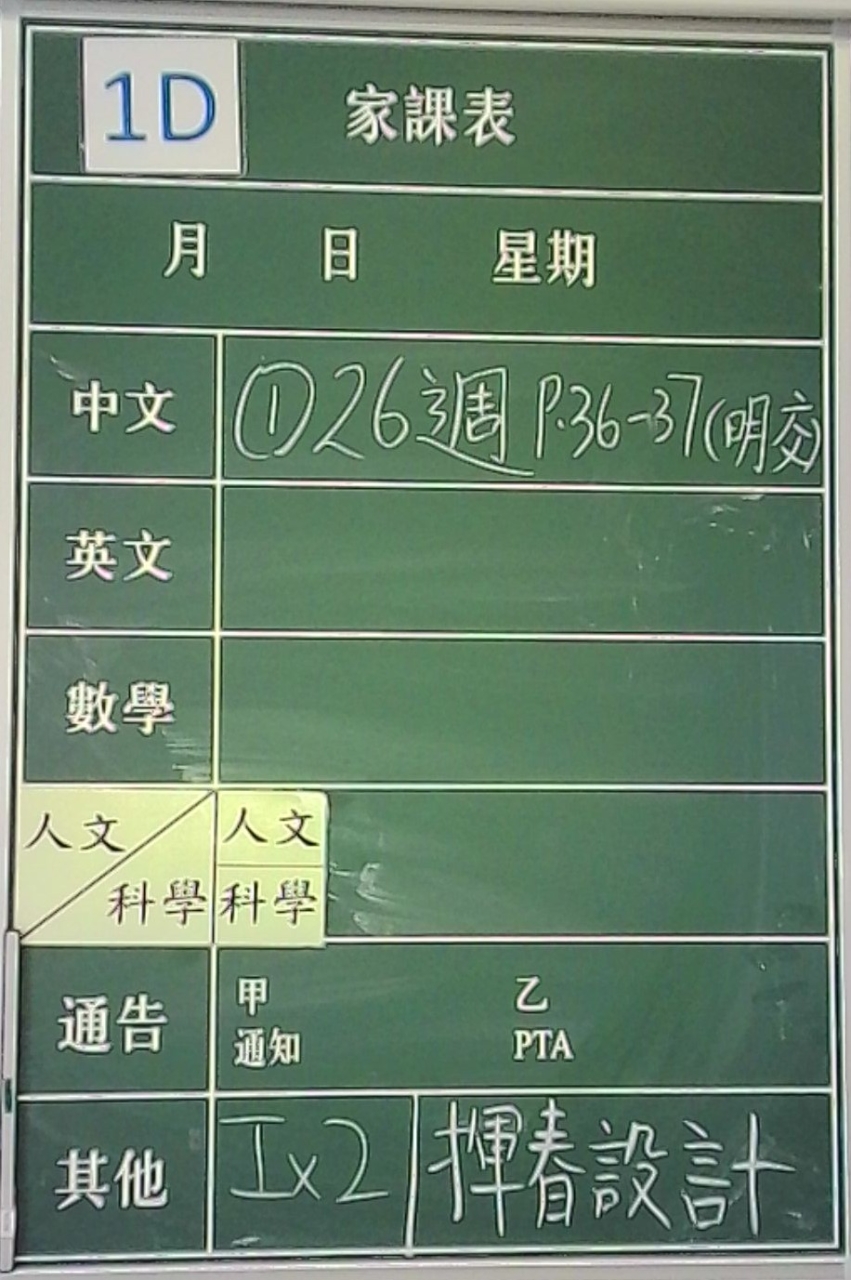 1D 家課表
月 日 星期
中文 ①26週 P.36-37(明交)
英文
數學
人文 人文
科學 科學
通告 甲 乙
通知 PTA
其他 I×2 揮春設計